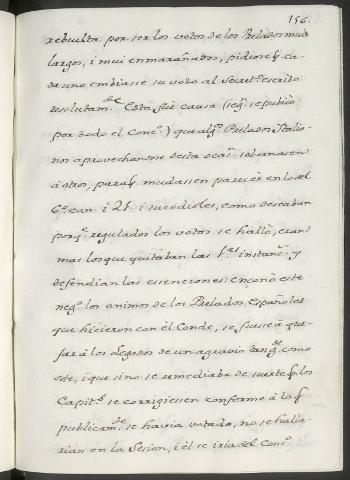 156.
rebuelta por ser los votos de los Prelados mui
largos, i mui enmarañados, pidiose q̃ ca-
da uno embiasse su voto al Secret.º escrito
resolutam.te Esta fuè causa (seg.n se publicò
por todo el Conc.º) que alg.s Prelados Italia-
nos aprovechandose desta ocas.n sobornasen
à otros, para q̃ mudassen parecèr en lo del
6.º can. i 21. i sucedioles, como deseaban
porq.e regulados los votos se hallò, eran
mas los que quitaban las 1.ras instanc.s y
defendian las essenciones: enconò este
neg.º los animos de los Prelados Españoles
que hicieron con el Conde, se fuesse à que-
jar à los Legados de un agravio tan g.de como
este, i que sino se remediaba de suerte q̃ los
Capit.s se corrigiessen conforme à lo q̃
publicam.te se havia votado, no se halla-
rian en la Sesion, i èl se iria del Conc.º